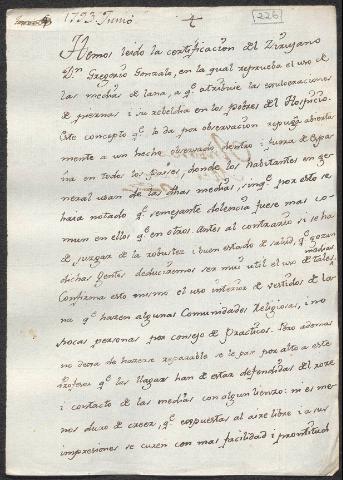 1793. Junio
226
Hemos leido la certificacion del Zirujano
Dn Gregorio Gonzalo, en la qual reprueba el uso de
las medias de lana, a qe atribuie las exulceraciones
de piernas i su rebeldia en los pobres del Hospicio.
Este concepto qe lo da por observacion repugna abierta
mente a un hecho observado dentro i fuera de Espa
ña en todos los Paises, donde los habitantes en ge
neral usan de las dhas medias, sin qe por esto se
haia notado qe semejante dolencia fuese mas co
mun en ellos qe en otros. Antes al contrario si se ha
de juzgar de la robustez i buen estado de salud, qe gozan
dichas gentes deduciremos ser mui util el uso de tales medias
Confirma esto mismo el uso interior de vestidos de la
na qe hazen algunas Comunidades Religiosas, i no
pocas personas por consejo de Practicos. Pero ademas
no dexa de hazerse reparable se le pase por alto a este
Profesor qe las llagas han de estar defendidas del roze
i contacto de las medias con algun lienzo: ni es me
nos duro de creer, qe expuestas al aire libre i a sus
impresiones se curen con mas facilidad i prontitud